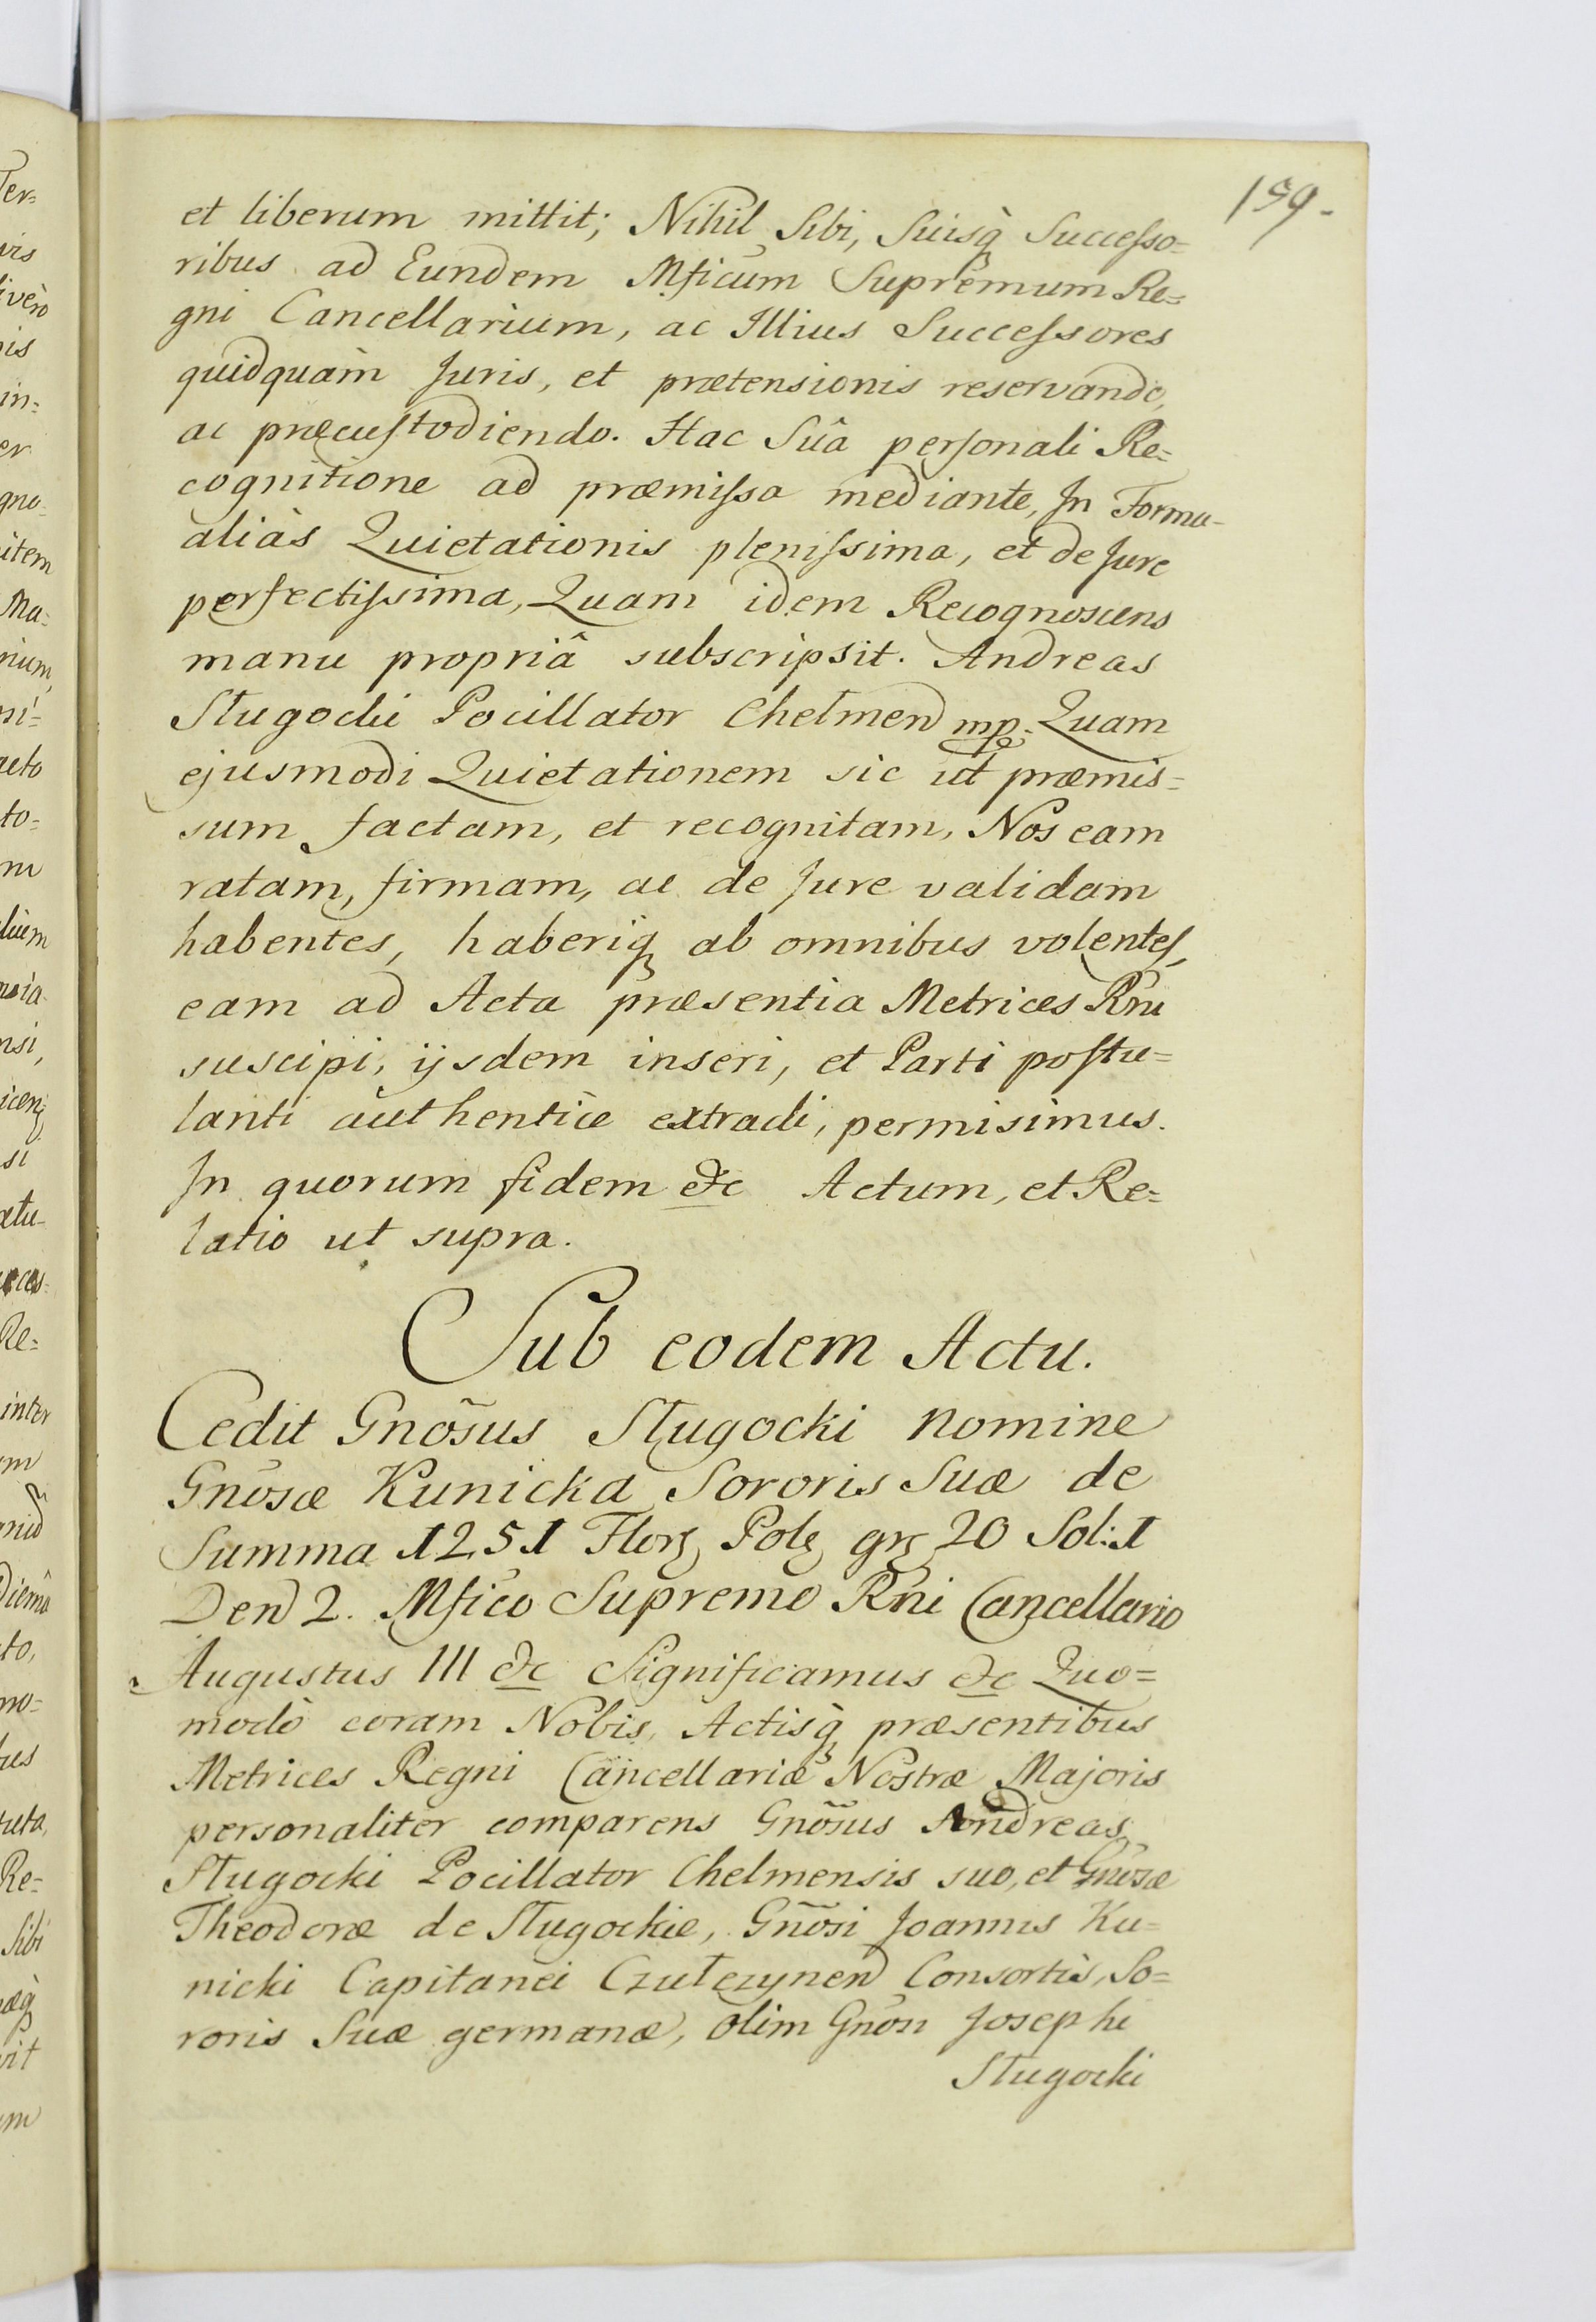 159.
et liberum mittit; Nihil Sibi, Suisq̀ Successo=
ribus ad Eundem Mficum Supremum Re=
gni Cancellarium, ac Illius Successores
quidquàm Juris, et prætensionis reservando,
ac præcustodiendo. Hac Suâ personali Re=
cognitione ad præmissa mediante, In Forma
aliàs Quietationis plenissima, et de Jure
perfectissima, Quam idem Recognoscens
manu propriâ subscripsit. Andreas
Sługocki Pocillator Chelmen mp. Quam
ejusmodi Quietationem sic ut præmis=
sum factam, et recognitam, Nos eam
ratam, firmam, ac de Jure validam
habentes, haberiq ab omnibus volentes,
eam ad Acta præsentia Metrices Rni
suscipi, ijsdem inseri, et Parti postu=
lanti authentice extradi, permisimus.
In quorum fidem &c Actum, et Re=
latio ut supra.
Sub eodem Actu.
Cedit Gnõsus Sługocki nomine
Gnõsæ Kunicka Sororis Suæ de
Summa 1251 Flor Pol gr 20 Sol: 1
Den 2. Mfico Supremo Rni Cancellario
Augustus III &c Significamus &c Quo=
modò coram Nobis, Actisq̀ præsentibus
Metrices Regni Cancellariæ Nostræ Majoris
personaliter comparens Gnõsus Andreas
Sługocki Pocillator Chelmensis suo, et Gnõsæ
Theodoræ de Sługockie, Gnõsi Joannis Ku=
nicki Capitanei Czułczynen Consortis, So=
roris Suæ germanæ, olim Gnõsi Josephi
Sługocki